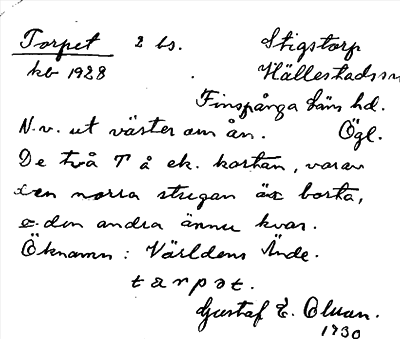 Torpet 2 bs. Stigstorp
kb 1928 Hällestads sn
Finspånga läns hd.
N.v. ut väster om ån. Ögl.
De två T å ek. kartan, varav
den norra stugan är borta,
o. den andra ännu kvar.
Öknamn: Världens Ände.
tarpət.
Gustaf E. Olsson.
1930